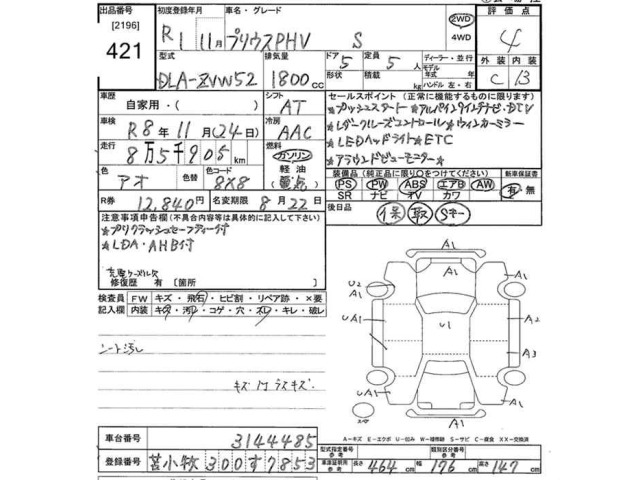 出品番号 初度登録年月 車名・グレード 評価点
[2196]
421
R1 11月 プリウスPHV S 2WD 4WD 4
型式 排気量 ドア 5 定員 5人 ディーラー・並行 モデル 年式 年 ハンドル 左・右 外装 内装
DLA-ZVW52 1800cc 形状 積載 kg C B
車歴 シフト セールスポイント (正常に機能するものに限ります)
自家用・( ) AT ★プッシュスタート★アルパインワイドナビ・DTV
車検 冷房 ★レダークルーズコントロール★ウィンカーミラー
R8年11月(24日) AAC ★LEDヘッドライト★ETC
走行 燃料 ★アラウンドビューモニター★
8万5千905km ガソリン 軽油 (電気)
色 アオ 色替 色コード 8X8
装備品 (純正品に限り○をつけてください) 新車保証書
PS PW ABS エアB AW 有 無
SR ナビ オV カワ
R券 12,840円 名変期限 8月22日
後日品 保 取 Sキー
注意事項申告欄 (不具合内容は具体的に記入して下さい)
★プリクラッシュセーフティー付
★LDA・AHB付
修復歴 有 [箇所 ]
検査員記入欄 FW キズ・飛石・ヒビ割・リペア跡・×要
内装 キズ・汚レ・コゲ・穴・スレ・キレ・破レ
シート汚し
A1
A1 A1
U2 A1
A1
UA1 U1 A2
A3
UA1
A1
A1
A1
A－キズ E－エクボ U－凹み W－補修跡 S－サビ C－腐食 XX－交換済
車台番号 3144485
登録番号 苫小牧 300 す 7853
型式指定番号 参考 類別区分番号 参考
車庫証明用 参考 長さ 464cm 幅 176cm 高さ 147cm